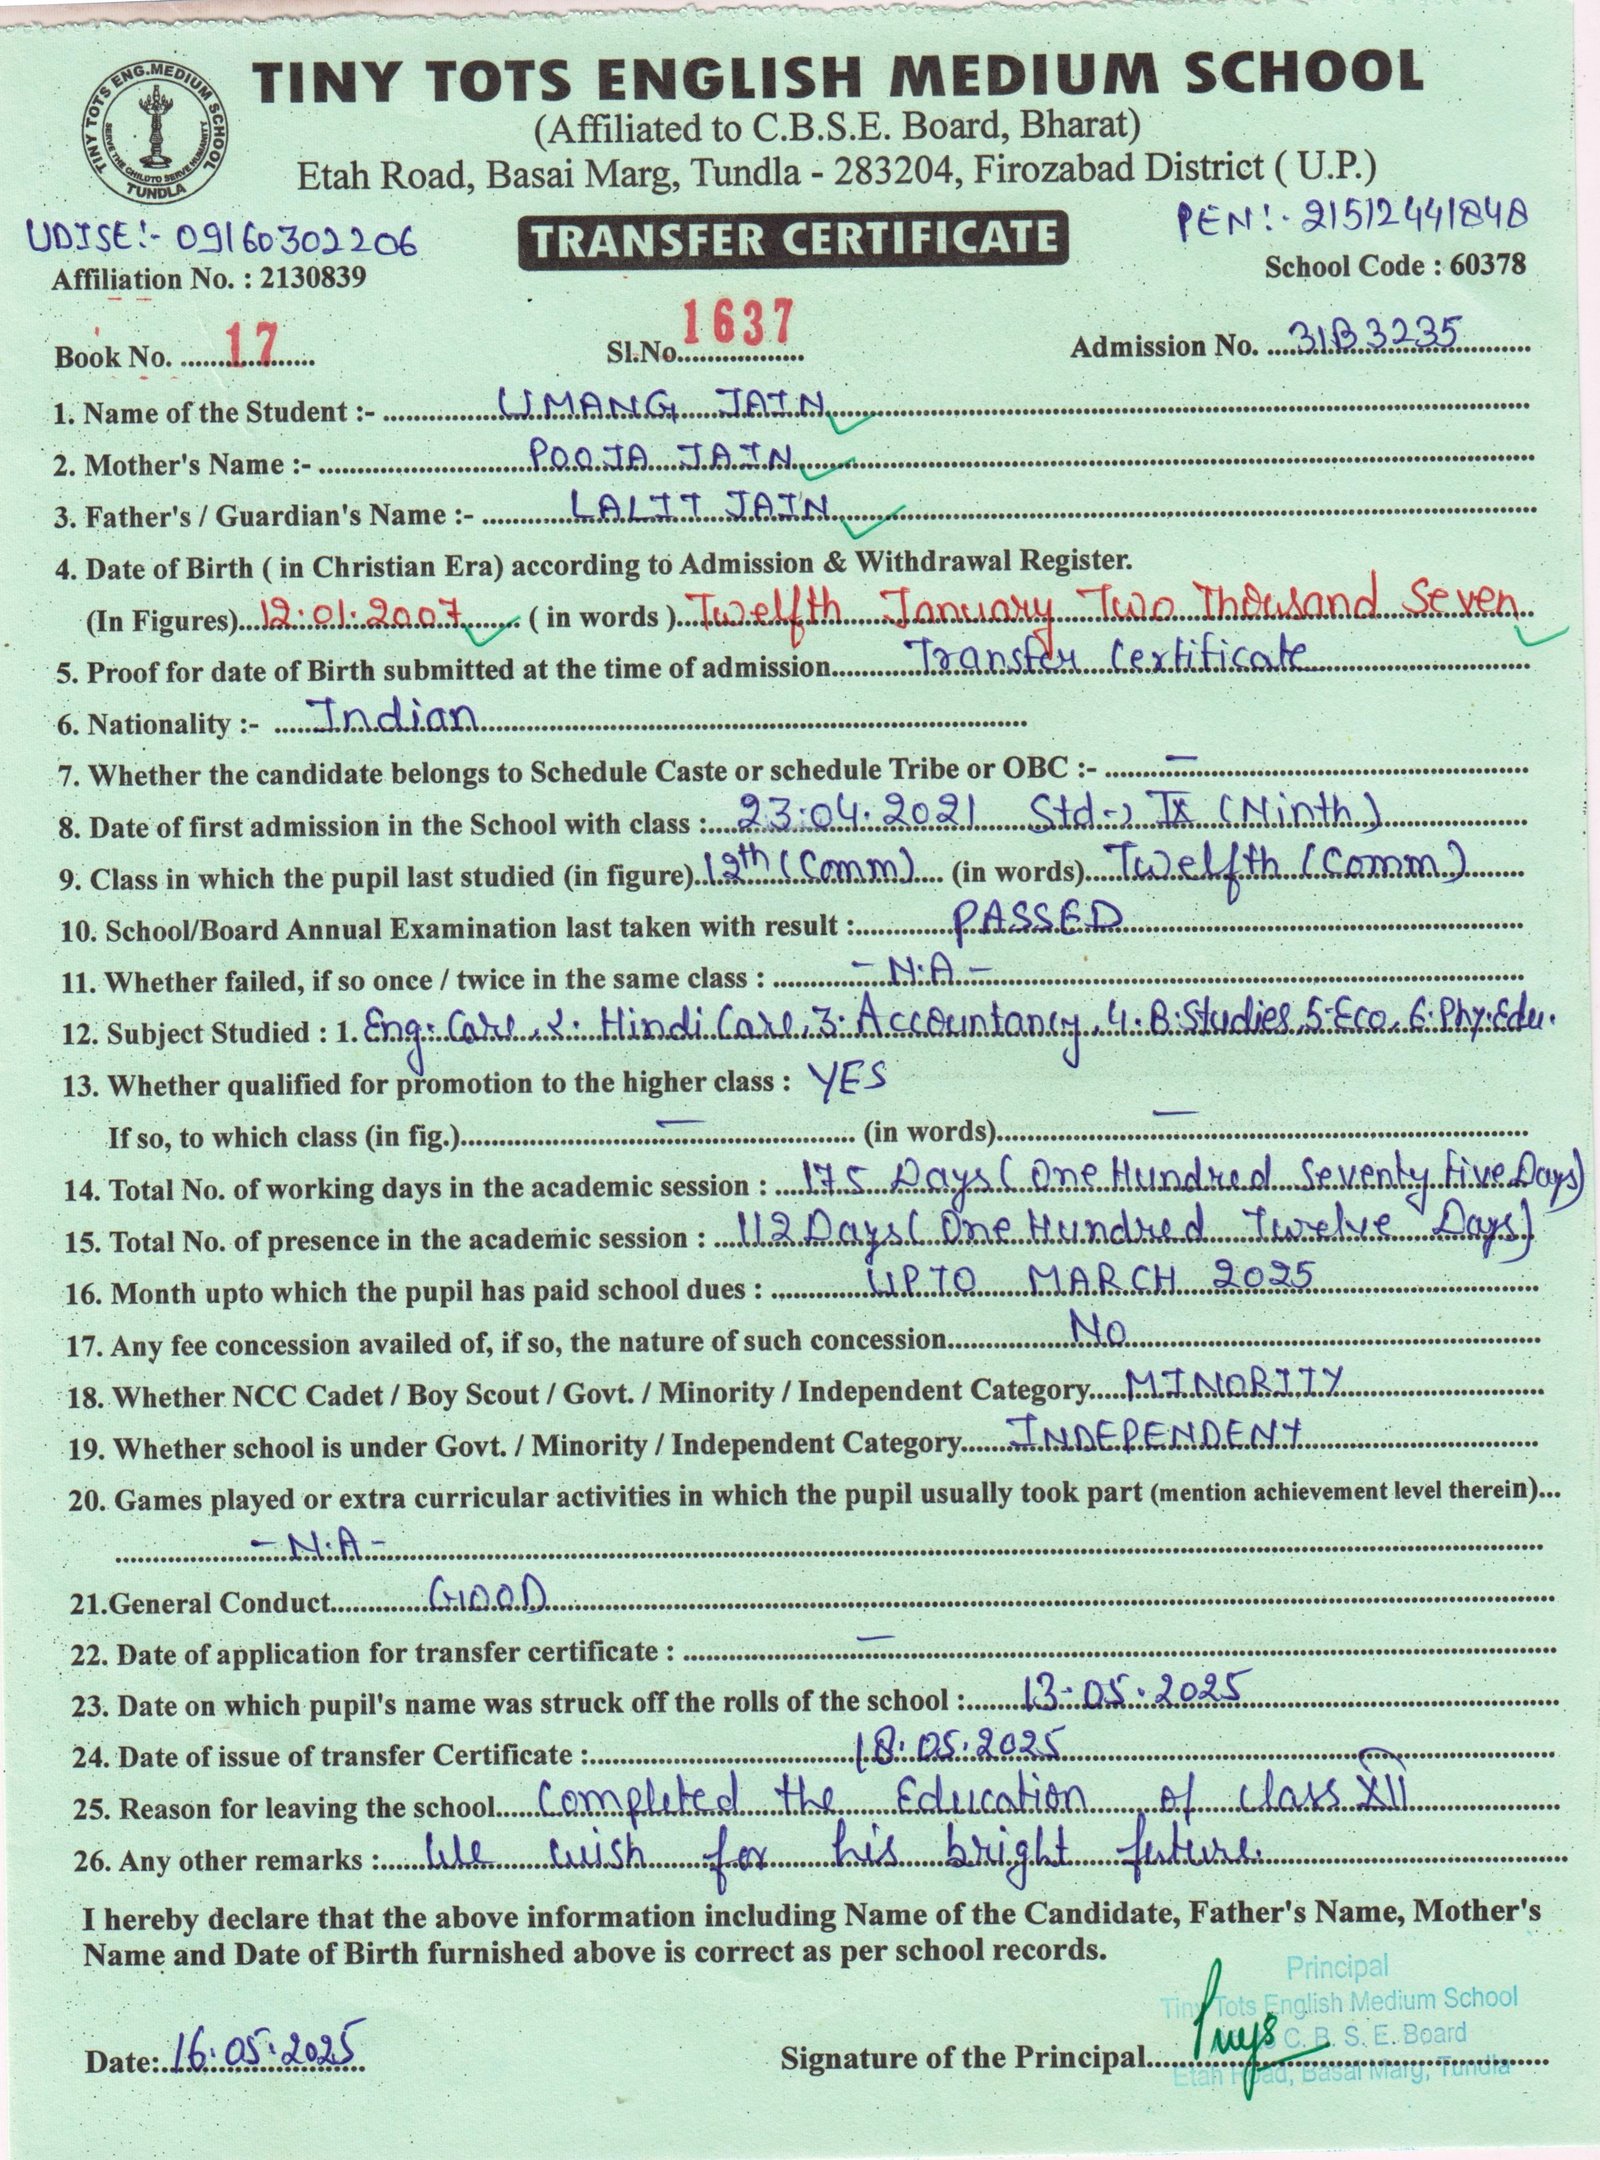 TINY TOTS ENG.MEDIUM SCHOOL
SERVE THE CHILD TO SERVE HUMANITY
TUNDLA
TINY TOTS ENGLISH MEDIUM SCHOOL
(Affiliated to C.B.S.E. Board, Bharat)
Etah Road, Basai Marg, Tundla - 283204, Firozabad District ( U.P.)
UDISE:- 09160302206
TRANSFER CERTIFICATE
PEN:- 21512441848
Affiliation No. : 2130839
School Code : 60378
Book No. 17
Sl.No. 1637
Admission No. 31B3235
1. Name of the Student :- UMANG JAIN
2. Mother's Name :- POOJA JAIN
3. Father's / Guardian's Name :- LALIT JAIN
4. Date of Birth ( in Christian Era) according to Admission & Withdrawal Register.
(In Figures) 12.01.2007 ( in words ) Twelfth January Two Thousand Seven
5. Proof for date of Birth submitted at the time of admission Transfer Certificate
6. Nationality :- Indian
7. Whether the candidate belongs to Schedule Caste or schedule Tribe or OBC :- —
8. Date of first admission in the School with class : 23.04.2021 Std-) IX (Ninth)
9. Class in which the pupil last studied (in figure) 12th (Comm) (in words) Twelfth (Comm)
10. School/Board Annual Examination last taken with result : PASSED
11. Whether failed, if so once / twice in the same class : -N.A-
12. Subject Studied : 1. Eng. Core, 2. Hindi Core, 3. Accountancy, 4. B.Studies, 5-Eco, 6. Phy.Edu.
13. Whether qualified for promotion to the higher class : YES
If so, to which class (in fig.) — (in words) —
14. Total No. of working days in the academic session : 175 Days (One Hundred Seventy Five Days)
15. Total No. of presence in the academic session : 112 Days (One Hundred Twelve Days)
16. Month upto which the pupil has paid school dues : UPTO MARCH 2025
17. Any fee concession availed of, if so, the nature of such concession No
18. Whether NCC Cadet / Boy Scout / Govt. / Minority / Independent Category MINORITY
19. Whether school is under Govt. / Minority / Independent Category INDEPENDENT
20. Games played or extra curricular activities in which the pupil usually took part (mention achievement level therein)...
-N.A-
21.General Conduct GOOD
22. Date of application for transfer certificate : —
23. Date on which pupil's name was struck off the rolls of the school : 13.05.2025
24. Date of issue of transfer Certificate : 18.05.2025
25. Reason for leaving the school Completed the Education of class XII
26. Any other remarks : We wish for his bright future.
I hereby declare that the above information including Name of the Candidate, Father's Name, Mother's
Name and Date of Birth furnished above is correct as per school records.
Principal
Tiny Tots English Medium School
C. B. S. E. Board
Etah Road, Basai Marg, Tundla
Date: 16.05.2025
Signature of the Principal